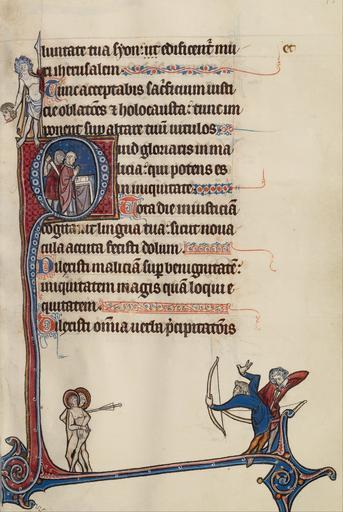 luntate tua syon: ut edificent᷑ mu et
ri iherusalem
Tunc acceptabis sac̃ficium iusti
cie oblac̃ões ⁊ holocausta: tunc im
ponent sup altare tuũ uitulos
Quid gloriaris in ma
licia: qui potens es
in iniquitate
Tota die iniusticiã
cogitauit lingua tua: sicut noua
cula acuta fecisti dolum
Dilexisti maliciã sup benignitatẽ:
iniquitatem magis quã loqui e
quitatem
Dilexisti om̃ia uerba p̃cipitac̃õis